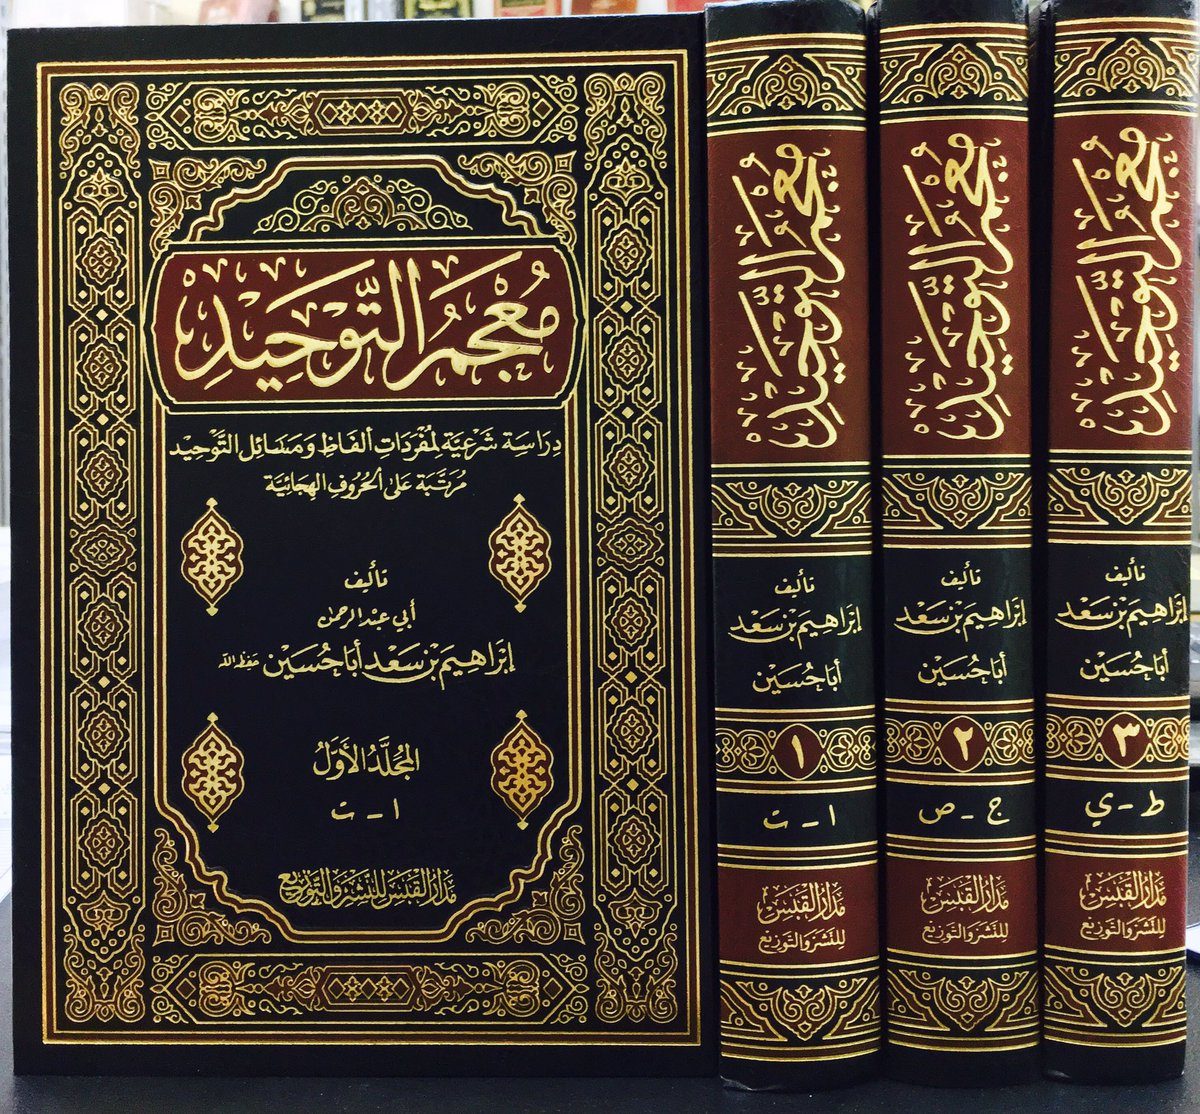 مُعْجَمُ التَّوْحِيدِ
دِرَاسَة شَرْعِيَّة لِمُفْرَدَاتِ أَلفَاظِ وَمَسَائِل التَّوْحِيد
مُرَتَّبَة عَلَى الحُرُوف الهِجَائِيَّة
تأليف
أبي عبد الرحمن
إبْرَاهِيم بْن سَعْد أبَا حُسَيْن حفظه الله
المُجَلَّدُ الأَوَّلُ
ا - ت
مَدَارُ القَبَسِ للنَّشْرِ وَالتَّوْزِيعِ
مُعْجَمُ التَّوْحِيدِ
تأليف
إبْرَاهِيم بْن سَعْد
أبَا حُسَيْن
١
ا - ت
مَدَارُ القَبَسِ
للنَّشْرِ وَالتَّوْزِيعِ
مُعْجَمُ التَّوْحِيدِ
تأليف
إبْرَاهِيم بْن سَعْد
أبَا حُسَيْن
٢
ج - ص
مَدَارُ القَبَسِ
للنَّشْرِ وَالتَّوْزِيعِ
مُعْجَمُ التَّوْحِيدِ
تأليف
إبْرَاهِيم بْن سَعْد
أبَا حُسَيْن
٣
ط - ي
مَدَارُ القَبَسِ
للنَّشْرِ وَالتَّوْزِيعِ